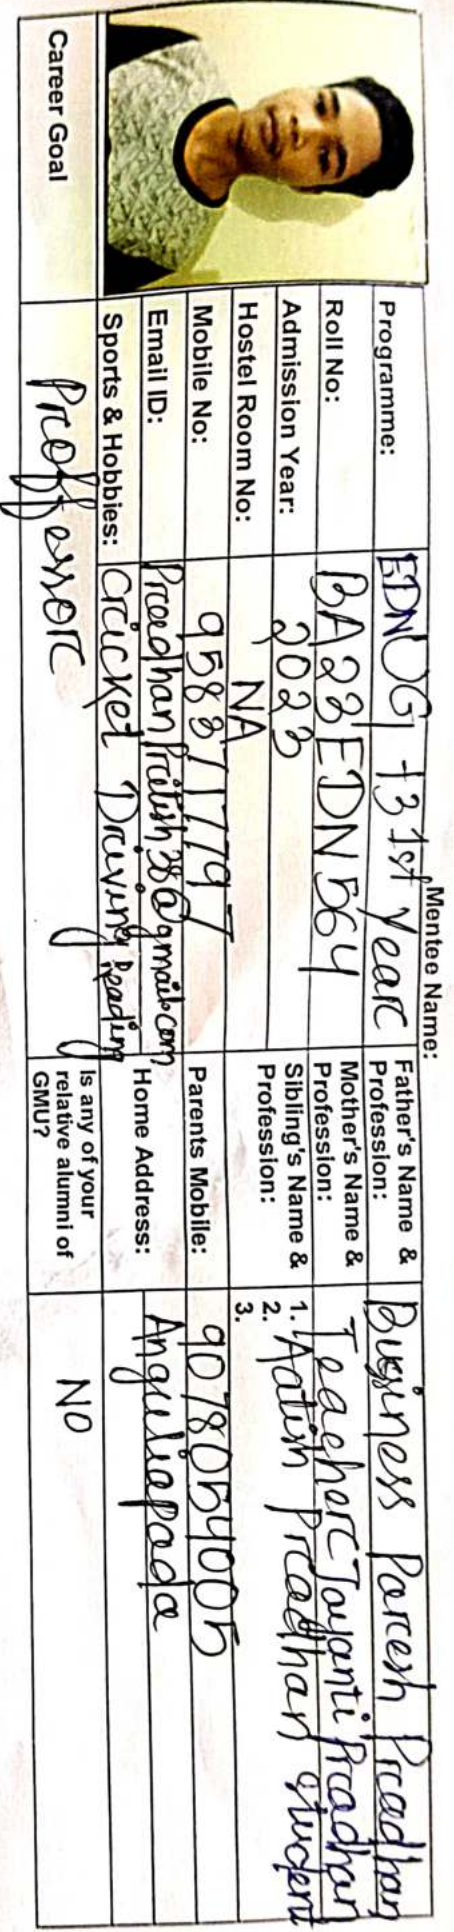 Mentee Name:
Programme: EDN UG, +3 1st Yearc
Father's Name & Profession: Business Parcesh Prcadhan
Roll No: BA23EDN564
Mother's Name & Profession: Teacherc Jayanti Prcadhan
Admission Year: 2023
Sibling's Name & Profession:
1. Aatish Prcadhan student
2.
3.
Hostel Room No: NA
Mobile No: 9583717797
Parents Mobile: 9078054005
Email ID: Prcadhanprcitish38@gmail.com
Home Address: Anguliapada
Sports & Hobbies: Crcicket Drciving Reading
Career Goal
Proffessorc
Is any of your relative alumni of GMU? NO